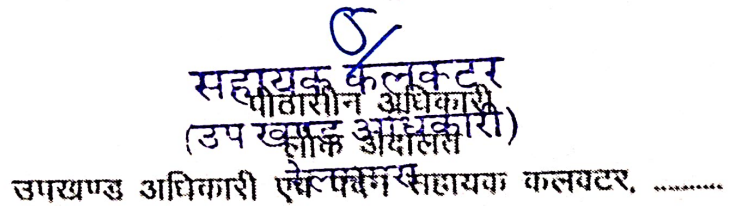 सहायक कलक्टर
पीठासीन अधिकारी
(उप खण्ड अधिकारी)
लोक अदालत
उपखण्ड अधिकारी एवं पदेन सहायक कलक्टर, ..........